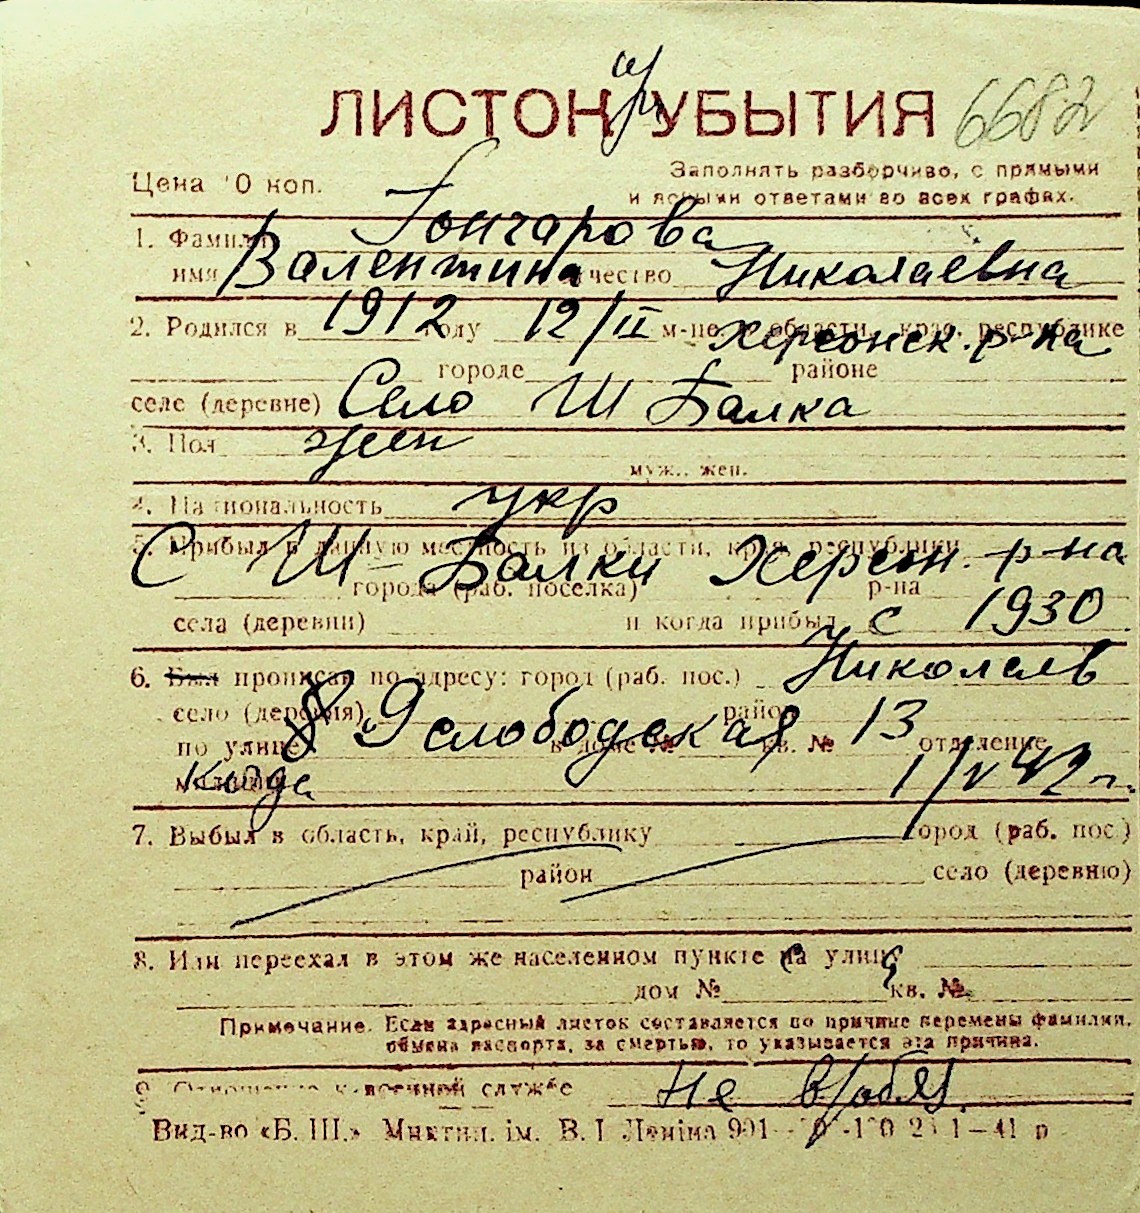 ЛИСТОК УБЫТИЯ 6682
Цена 10 коп.
Заполнять разборчиво, с прямыми
и ясными ответами во всех графах.
1. Фамилия Гончарова
имя Валентина отчество Николаевна
2. Родился в 1912 году 12/II м-це, в области, крае, республике
Херсонск. р-на
городе районе
селе (деревне) Село Ш Балка
3. Пол жен
муж., жен.
4. Национальность укр
5. Прибыл в данную местность из области, края, республики
С Ш-Балки Херсон. р-на
города (раб. поселка) р-на
села (деревни) и когда прибыл с 1930
6. Был прописан по адресу: город (раб. пос.) Николаев
село (деревня) район
по улице 8 Слободская в доме № кв. № 13 отделение
милиции когда 1/V 42 г.
7. Выбыл в область, край, республику город (раб. пос.)
район село (деревню)
8. Или переехал в этом же населенном пункте на улицу
дом № кв. №
Примечание. Если адресный листок составляется по причине перемены фамилии,
обмена паспорта, за смертью, то указывается эта причина.
9. Отношение к военной службе не в/обяз.
Вид-во «Б. Ш.» Миктип. ім. В. І Леніна 991